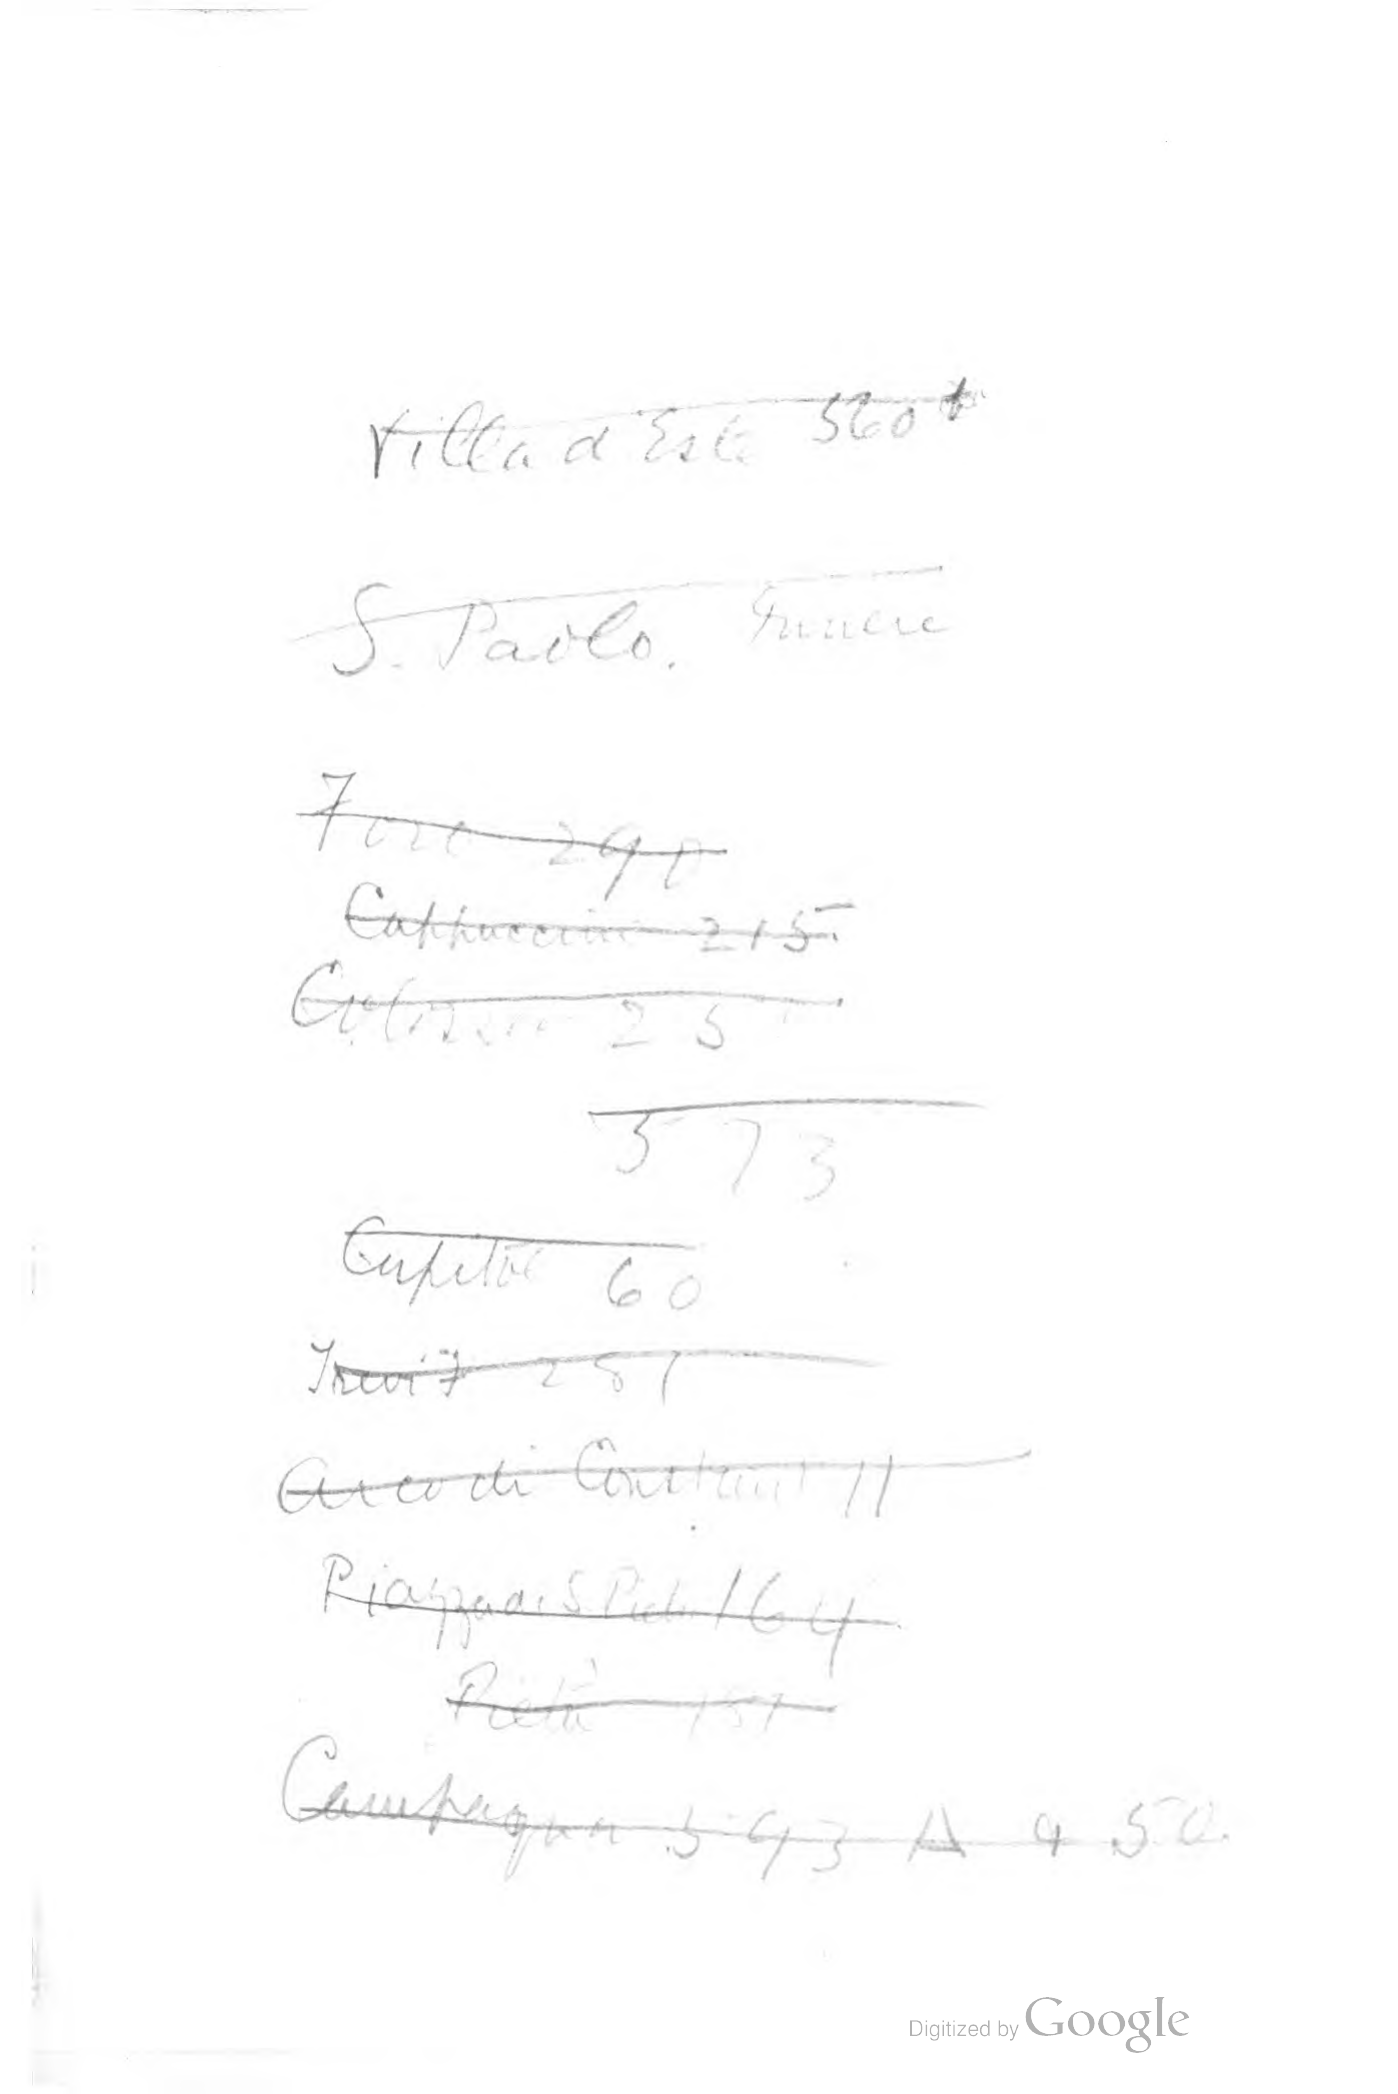 Villa d'Este 560+
S. Paolo.
Foro 29
Cappuccini 215
Colosseo 25
573
Capitol 60
Trevi 7 281
Arco di Constant 11
Piazza di S. Piet 164
Pietà 151
Campagna 593 A 4 50.
Digitized by Google